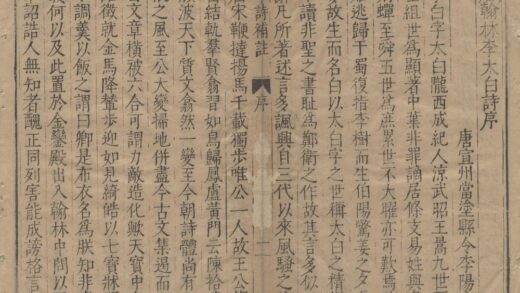 翰林李太白詩序
唐宣州當塗縣令李陽
白字太白隴西成紀人涼武昭王暠九世
圭組世為顯著中葉非罪謫居條支易姓與
蟬至舜五世為庶累世不大曜亦可歎焉
逃歸于蜀復指李樹而生伯陽驚姜之夕
故生而名白以太白字之世稱太白之精
讀非聖之書恥為鄭衛之作故其言多似
凡所著述言多諷興自三代以來風騷之
詩補註 序 一
屈宋鞭撻揚馬千載獨步唯公一人故王公
結軌羣賢翕習如鳥歸鳳盧黃門云陳拾
波天下質文翕然一變至今朝詩體尚有
之風至公大變掃地併盡今古文集遏而
文章橫被六合可謂力敵造化歟天寶中
徵就金馬降輦步迎如見綺皓以七寶牀
調羹以飯之謂曰卿是布衣名為朕知非
何以及此置於金鑾殿出入翰林中問以
詔誥人無知者醜正同列害能成謗格言